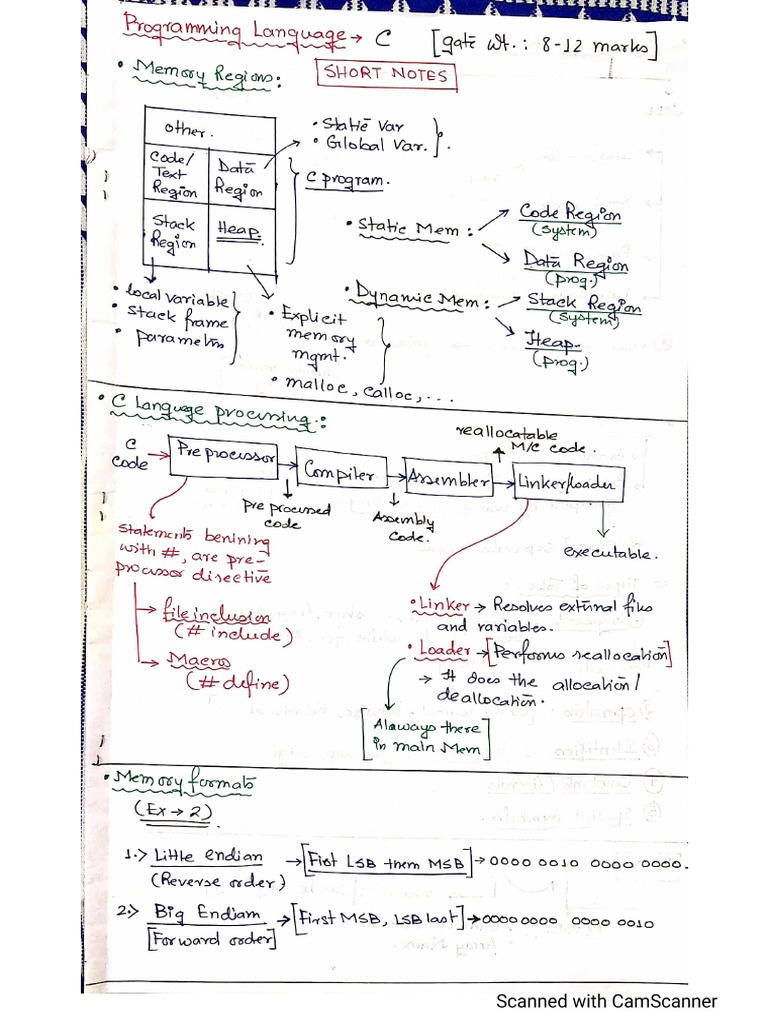 Programming Language → C [gate wt. : 8-12 marks]
SHORT NOTES
• Memory Regions:
other.
Code/
Text
Region
Data
Region
Stack
Region
Heap.
• Static Var
• Global Var.
C program.
• Static Mem :
Code Region
(System)
Data Region
(prog.)
• Dynamic Mem :
Stack Region
(System)
Heap.
(prog.)
• local variable
• stack frame
• parameters
• Explicit
memory
mgmt.
• malloc, calloc, ...
• C Language processing:
C
code
→ Preprocessor → Compiler → Assembler → Linker/loader
reallocatable
M/C code.
Pre processed
code
Assembly
Code.
executable.
Statements benining
with #, are pre-
processor directive
→ file inclusion
(# include)
→ Macro
(# define)
• Linker → Resolves external files
and variables.
• Loader → [Performs reallocation]
→ It does the allocation/
deallocation.
[Alaways there
in main Mem]
• Memory formats
(Ex → 2)
1.> Little endian → [Fist LSB them MSB] → 0000 0010 0000 0000.
(Reverse order)
2.> Big Endian → [First MSB, LSB last] → 0000 0000 0000 0010
[Forward order]
Scanned with CamScanner